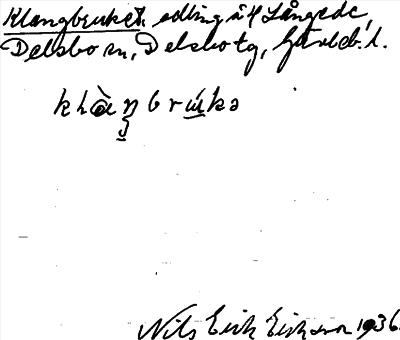 Klangbruket, odling å 4 Långede,
Delsbo sn, Delsbo tg, Gävleb. l.
Nils Erik Eriksson 1936.